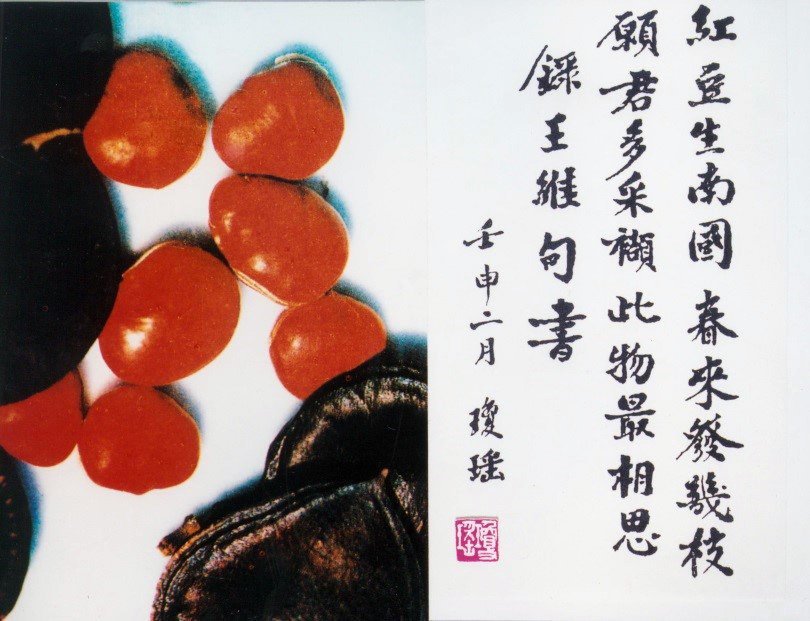 紅豆生南國 春來發幾枝
願君多采襭 此物最相思
錄王維句書
壬申二月 瓊瑤
瓊瑤